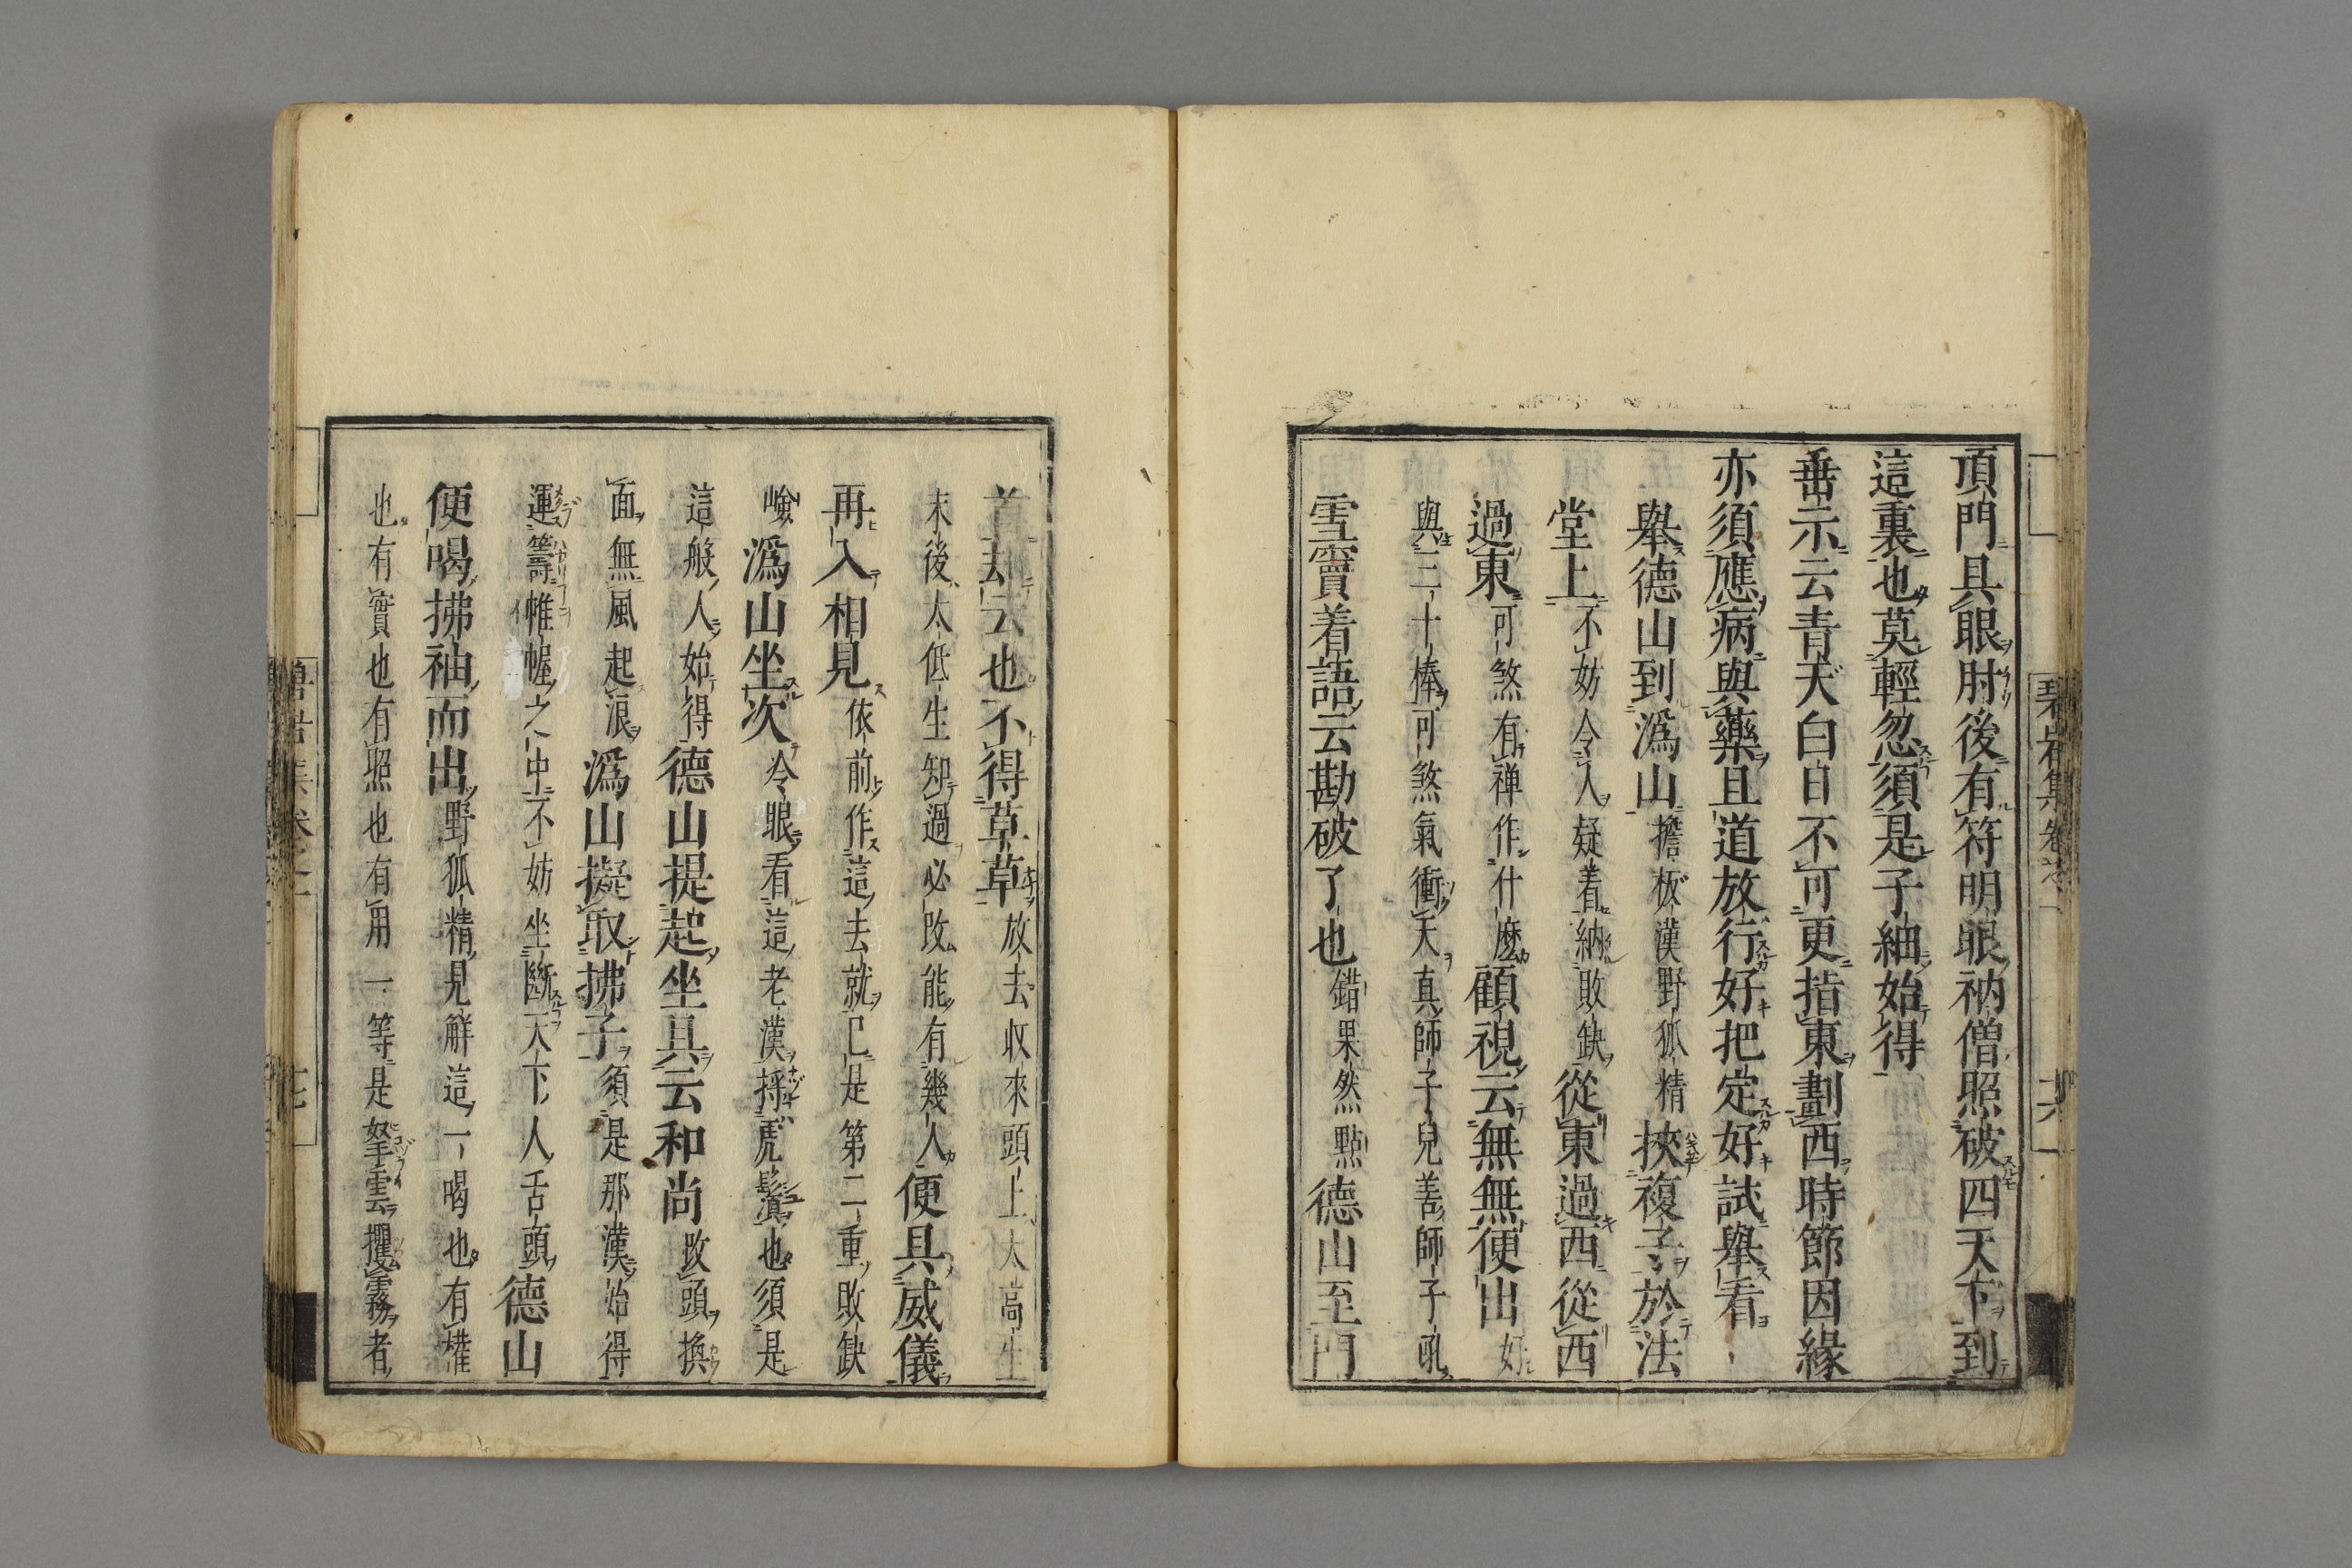 頂門具眼肘後有符明眼衲僧照破四天下到
這裏也莫輕忽須是子細始得
垂示云青天白日不可更指東劃西時節因緣
亦須應病與藥且道放行好把定好試擧看
擧德山到潙山擔板漢野狐精挾複子於法
堂上不妨令人疑着納敗缺從東過西從西
過東可煞有禅作什麽顧視云無無便出好
與三十棒可煞氣衝天真師子兒善師子吼
雪竇着語云勘破了也錯果然點德山至門
首却云也不得草草放去收來頭上太高生
末後太低生知過必改能有幾人便具威儀
再入相見依前作這去就已是第二重敗缺
嶮潙山坐次冷眼看這老漢捋虎鬚也須是
這般人始得德山提起坐具云和尚改頭換
面無風起浪潙山擬取拂子須是那漢始得
運籌帷幄之中不妨坐斷天下人舌頭德山
便喝拂袖而出野狐精見解這一喝也有權
也有實也有照也有用一等是拏雲攫霧者
碧岩集卷之一
六